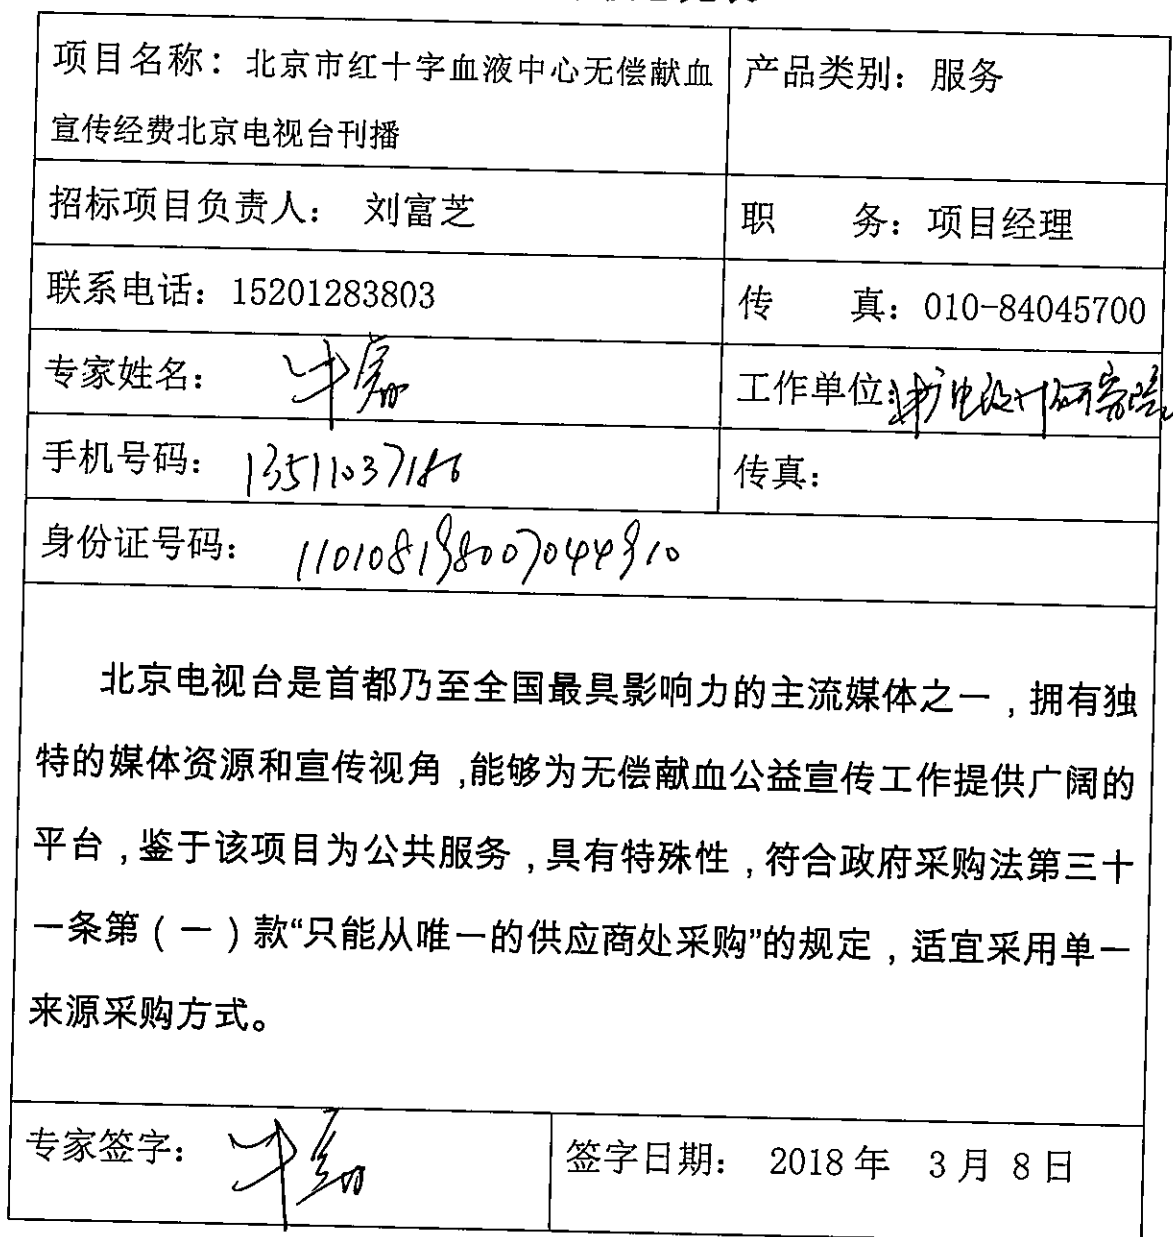 项目名称：北京市红十字血液中心无偿献血 产品类别：服务
宣传经费北京电视台刊播
招标项目负责人： 刘富芝 职 务：项目经理
联系电话：15201283803 传 真：010-84045700
专家姓名： 工作单位：
手机号码：13511037186 传真：
身份证号码：110108198007044910
北京电视台是首都乃至全国最具影响力的主流媒体之一，拥有独
特的媒体资源和宣传视角，能够为无偿献血公益宣传工作提供广阔的
平台，鉴于该项目为公共服务，具有特殊性，符合政府采购法第三十
一条第（一）款“只能从唯一的供应商处采购”的规定，适宜采用单一
来源采购方式。
专家签字： 签字日期： 2018 年 3 月 8 日